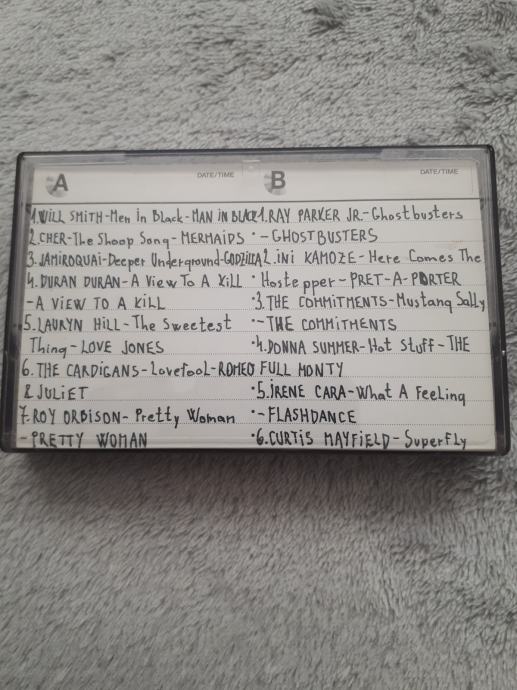 A DATE/TIME
1.WILL SMITH-Men in Black-MAN IN BLACK
2.CHER-The Shoop Song-MERMAIDS
3.JAMIROQUAI-Deeper Underground-GODZILLA
4.DURAN DURAN-A View To A Kill
-A VIEW TO A KILL
5.LAURYN HILL-The Sweetest
Thing-LOVE JONES
6.THE CARDIGANS-Lovefool-ROMEO
& JULIET
7.ROY ORBISON-Pretty Woman
-PRETTY WOMAN
B DATE/TIME
1.RAY PARKER JR.-Ghostbusters
-GHOSTBUSTERS
2.INI KAMOZE-Here Comes The
Hostepper-PRET-A-PORTER
3.THE COMMITMENTS-Mustang Sally
-THE COMMITMENTS
4.DONNA SUMMER-Hot Stuff-THE
FULL MONTY
5.IRENE CARA-What A Feeling
-FLASHDANCE
6.CURTIS MAYFIELD-Superfly